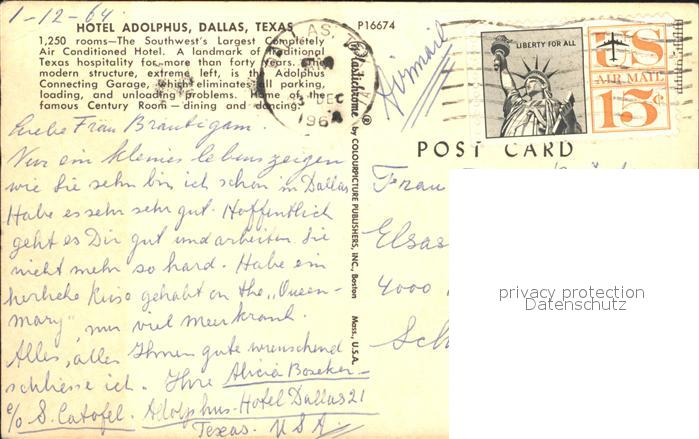 1-12-64.
HOTEL ADOLPHUS, DALLAS, TEXAS
P16674
1,250 rooms—The Southwest's Largest Completely
Air Conditioned Hotel. A landmark of traditional
Texas hospitality for more than forty years. The
modern structure, extreme left, is the Adolphus
Connecting Garage, which eliminates all parking,
loading, and unloading problems. Home of the
famous Century Room — dining and dancing.
DALLAS, T
DEC
1964
Plastichrome® by COLOURPICTURE PUBLISHERS, INC., Boston Mass., U.S.A.
Airmail
LIBERTY FOR ALL
US
AIR MAIL
15¢
POST CARD
Liebe Frau Bräutigam.
Nur ein kleines lebenszeigen
wie Sie sehn bin ich schon in Dallas
Habe es sehr sehr gut. Hoffentlich
geht es Dir gut und arbeiten Sie
nicht mehr so hard. Habe ein
herliche Reise gehabt on the „Queen-
mary" nur viel meerkrank.
Alles, alles Ihnen gute wuenschend
schliesse ich. Ihre Alicia Boseker-
c/o S. Catofel. Adolphus-Hotel Dallas 21
Texas. USA.
Frau
Elsas
4000
Sch
privacy protection
Datenschutz